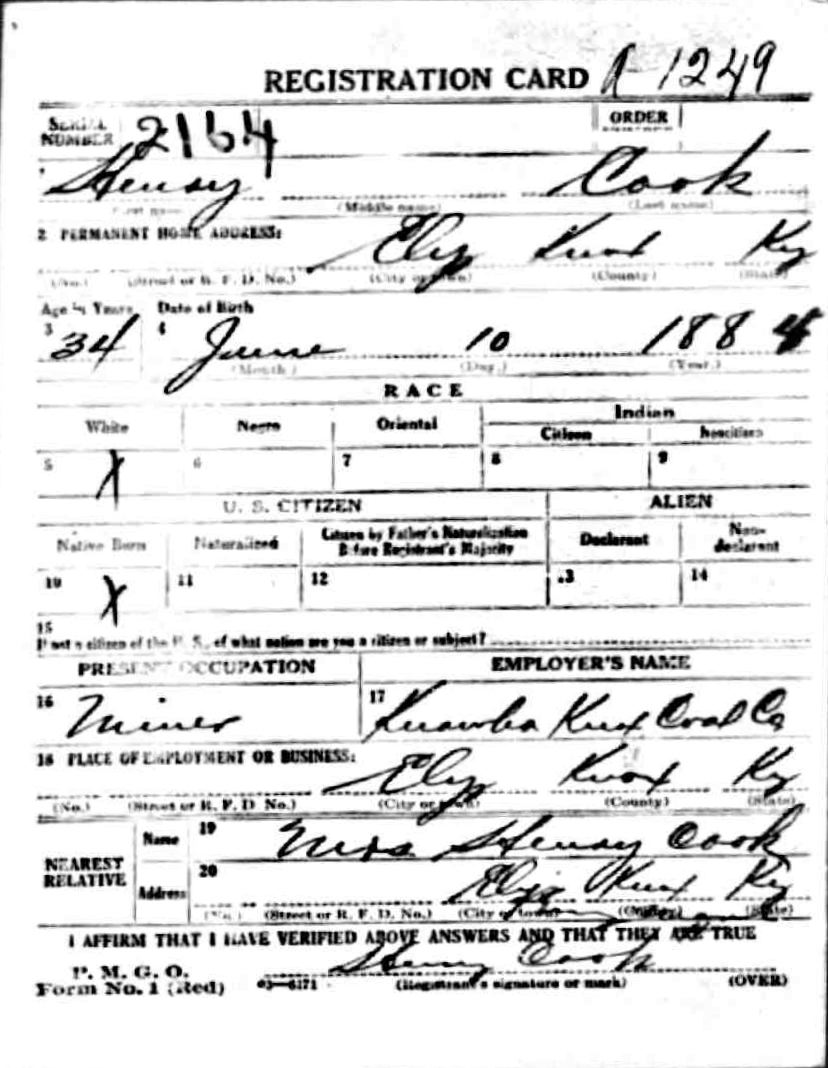 REGISTRATION CARD A-1249
SERIAL NUMBER 2164 ORDER
Henry Cook
First name (Middle name) (Last name)
2 PERMANENT HOME ADDRESS: Ely Knox Ky
(No.) (Street or R. F. D. No.) (City or town) (County) (State)
Age in Years Date of Birth
3 34 4 June 10 1884
(Month) (Day.) (Year.)
RACE
White Negro Oriental Indian
Citizen Noncitizen
5 X 6 7 8 9
U. S. CITIZEN ALIEN
Native Born Naturalized Citizen by Father's Naturalization Before Registrant's Majority Declarant Non-declarant
10 X 11 12 13 14
15
If not a citizen of the U. S., of what nation are you a citizen or subject?
PRESENT OCCUPATION EMPLOYER'S NAME
16 Miner 17 Knox Coal Co
18 PLACE OF EMPLOYMENT OR BUSINESS: Ely Knox Ky
(No.) (Street or R. F. D. No.) (City or town) (County) (State)
NEAREST RELATIVE Name 19 Mrs Henry Cook
Address 20 Ely Knox Ky
(No.) (Street or R. F. D. No.) (City or town) (County) (State)
I AFFIRM THAT I HAVE VERIFIED ABOVE ANSWERS AND THAT THEY ARE TRUE
P. M. G. O.
Form No. 1 (Red) 03—6171 Henry Cook
(Registrant's signature or mark) (OVER)